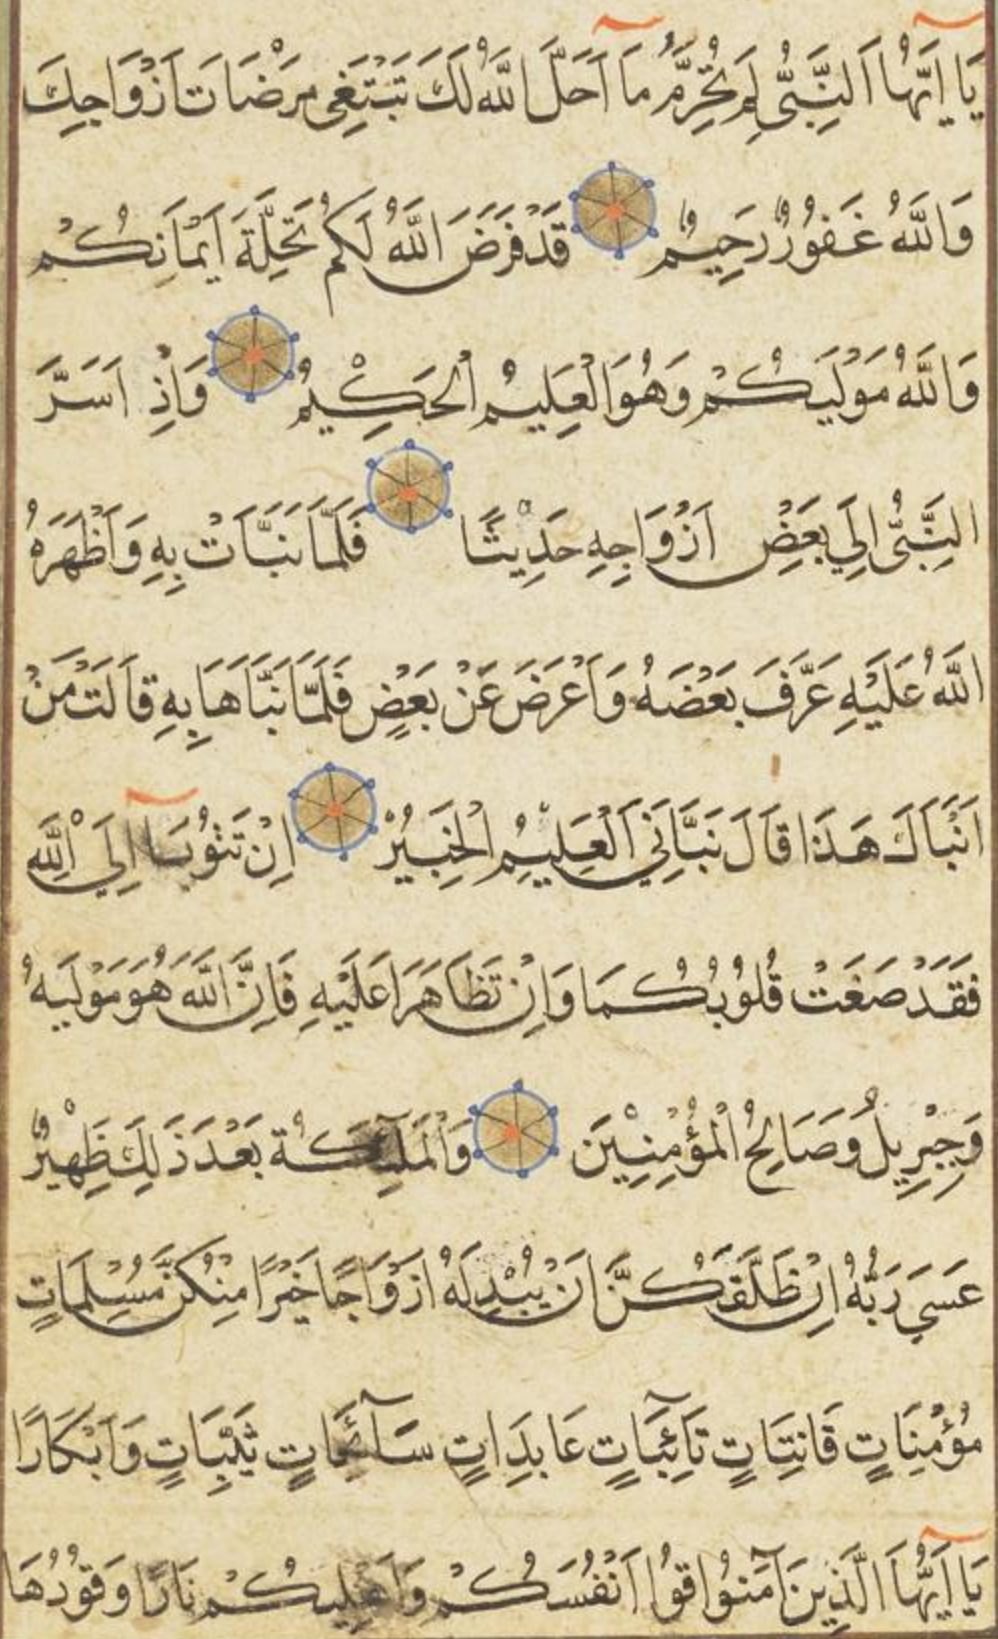 يَا اَيُّهَا اَلنَّبِيُّ لِمَ تُحَرِّمُ مَآ اَحَلَّ اللّٰهُ لَكَ تَبْتَغِي مَرْضَاتَ اَزْوَاجِكَ
وَاللّٰهُ غَفُورٌ رَحِيمٌ قَدْ فَرَضَ اللّٰهُ لَكُمْ تَحِلَّةَ اَيْمَانِكُمْ
وَاللّٰهُ مَوْلَيكُمْ وَهُوَ الْعَلِيمُ الْحَكِيْمُ وَاِذْ اَسَرَّ
النَّبِيُّ اِلَي بَعْضِ اَزْوَاجِهِ حَدِيثًا فَلَمَّا نَبَّاَتْ بِهِ وَاَظْهَرَهُ
اللّٰهُ عَلَيْهِ عَرَّفَ بَعْضَهُ وَاَعْرَضَ عَنْ بَعْضٍ فَلَمَّا نَبَّاَهَا بِهِ قَالَتْ مَنْ
اَنْبَاَكَ هَذَا قَالَ نَبَّاَنِي اَلْعَلِيْمُ الْخَبِيْرُ اِنْ تَتُوْبَا اِلَي اللّٰهِ
فَقَدْ صَغَتْ قُلُوْبُكُمَا وَاِنْ تَظَاهَرَا عَلَيْهِ فَاِنَّ اللّٰهَ هُوَ مَوْلَيهُ
وَجِبْرِيلُ وَصَالِحُ الْمُؤْمِنِيْنَ وَالْمَلٓئِكَةُ بَعْدَ ذَلِكَ ظَهِيْرٌ
عَسَي رَبُّهُ اِنْ طَلَّقَكُنَّ اَنْ يُبْدِلَهُ اَزْوَاجًا خَيْرًا مِنْكُنَّ مُسْلِمَاتٍ
مُؤْمِنَاتٍ قَانِتَاتٍ تَآئِبَاتٍ عَابِدَاتٍ سَآئِحَاتٍ ثَيِّبَاتٍ وَاَبْكَارًا
يَا اَيُّهَا الَّذِينَ آمَنُوا قُوْا اَنْفُسَكُمْ وَاَهْلِيكُمْ نَارًا وَقُوْدُهَا